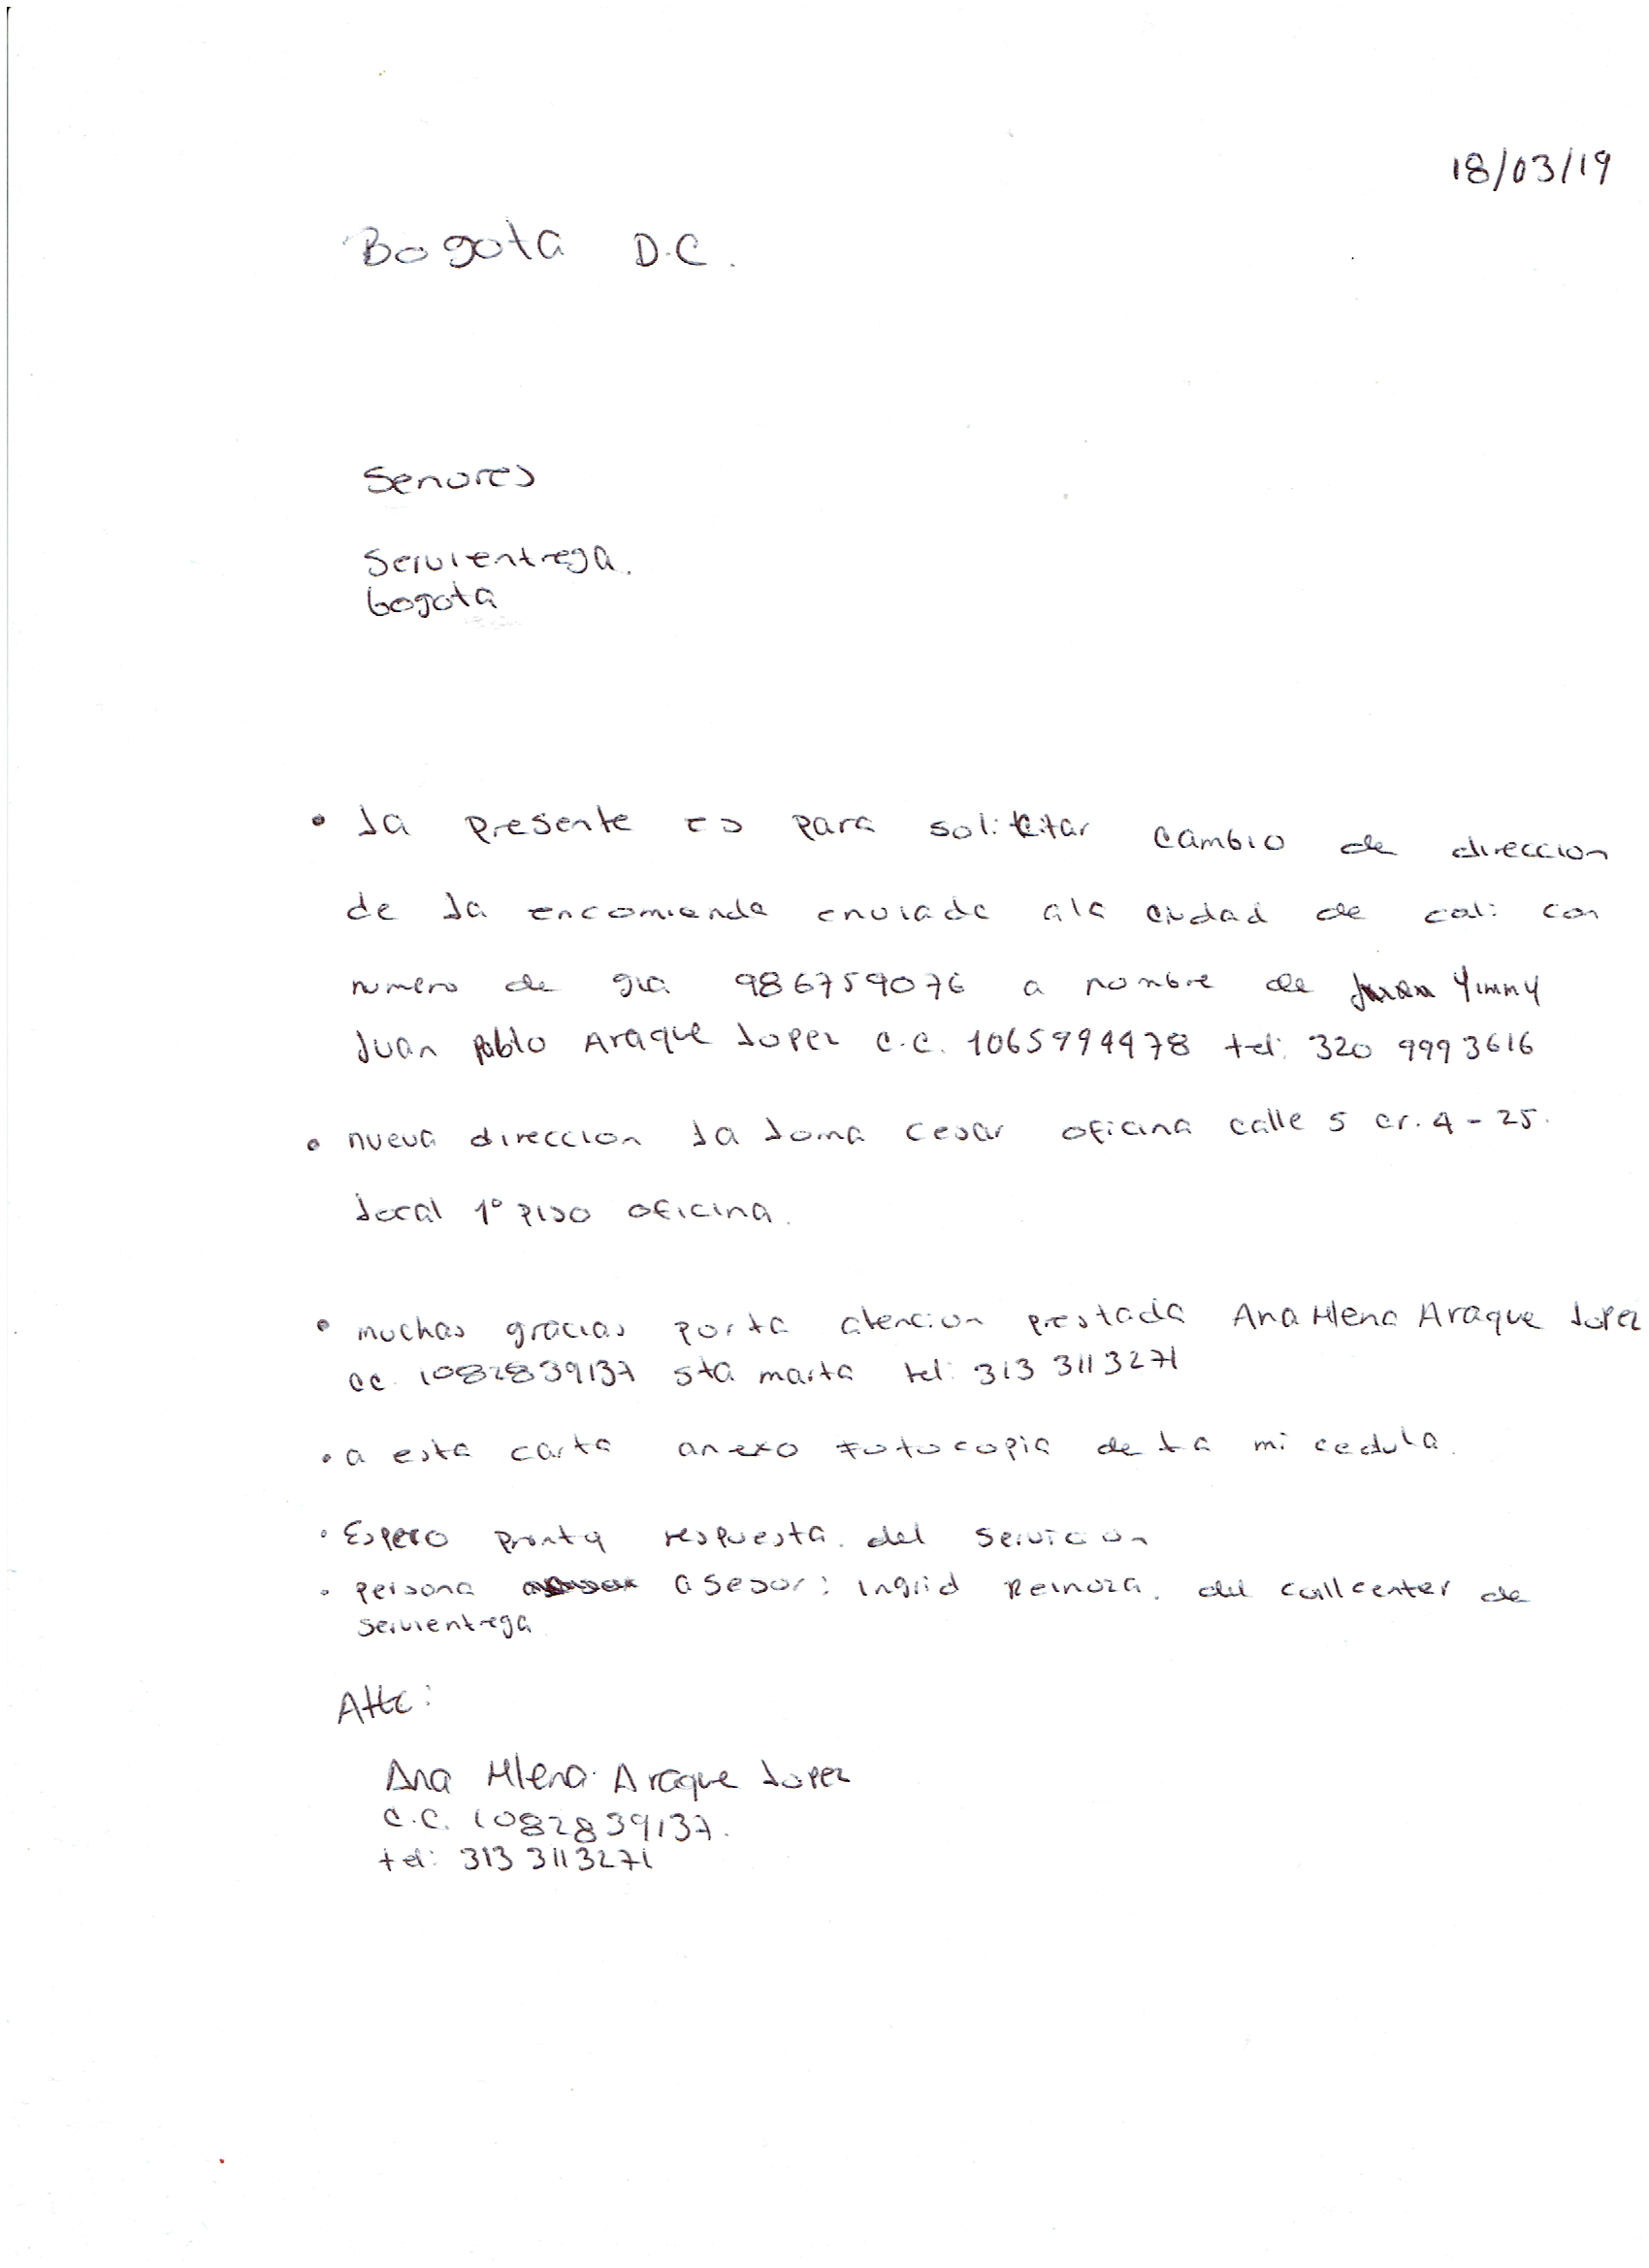 18/03/19
Bogota D.C.
Senores
Servientrega.
bogota
• la presente es para solicitar cambio de direccion
de la encomienda enviada ala ciudad de cali con
numero de gia 986759076 a nombre de Yimmy
Juan Pablo Araque Lopez C.C. 1065994478 tel: 320 9993616
• nueva direccion la loma cesar oficina calle 5 cr. 4 - 25.
local 1° piso oficina.
• muchas gracias por la atencion prestada Ana Milena Araque Lopez
cc. 1082839137 sta marta tel: 313 3113271
• a esta carta anexo fotocopia de la mi cedula.
• Espero pronta respuesta. del servicion
• persona asesor: ingrid Reinoza. del callcenter de
servientrega
Atte:
Ana Milena Araque Lopez
C.C. 1082839137.
tel: 313 3113271